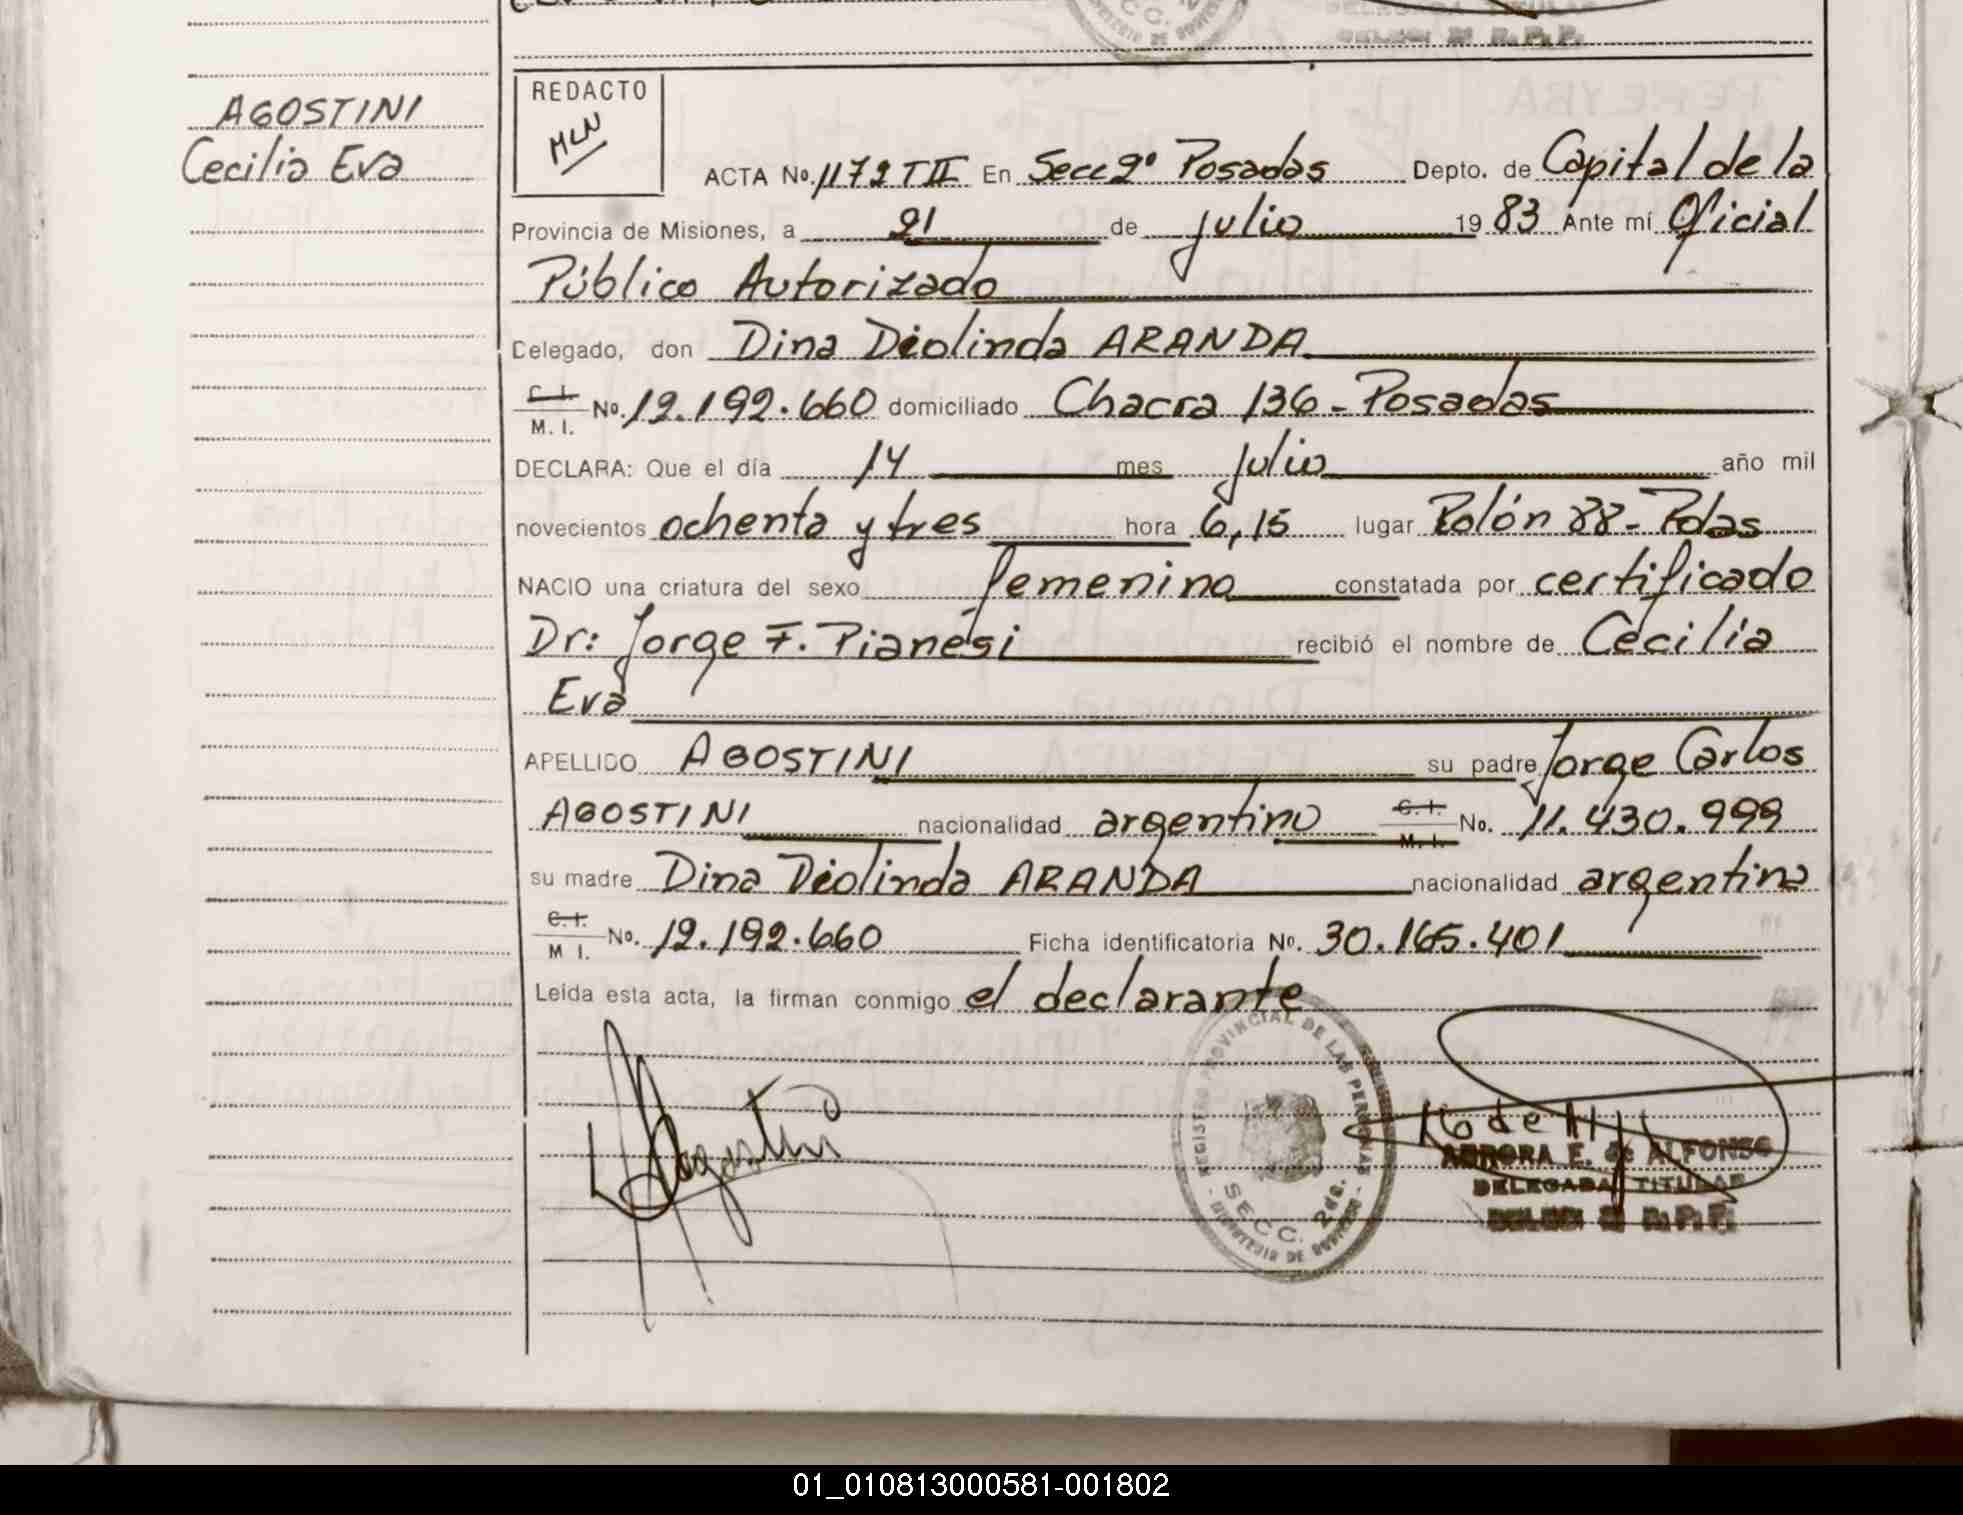 AGOSTINI
Cecilia Eva
REDACTO
MLN
ACTA No. 1172 T II En Secc 2º Posadas Depto. de Capital de la
Provincia de Misiones, a 21 de julio 19 83 Ante mí Oficial
Público Autorizado
Delegado, don Dina Diolinda ARANDA
C. I. M. I. No. 12.192.660 domiciliado Chacra 136 - Posadas
DECLARA: Que el día 14 mes julio año mil
novecientos ochenta y tres hora 6,15 lugar Rolón 88 - Pdas
NACIO una criatura del sexo femenino constatada por certificado
Dr: Jorge F. Pianesi recibió el nombre de Cecilia
Eva
APELLIDO AGOSTINI su padre Jorge Carlos
AGOSTINI nacionalidad argentino C. I. M. I. No. 11.430.999
su madre Dina Diolinda ARANDA nacionalidad argentina
C. I. M. I. No. 12.192.660 Ficha identificatoria No. 30.165.401
Leída esta acta, la firman conmigo el declarante
REGISTRO PROVINCIAL DE LAS PERSONAS
SECC. 2da.
AURORA E. de ALFONSO
DELEGADA TITULAR
01_010813000581-001802